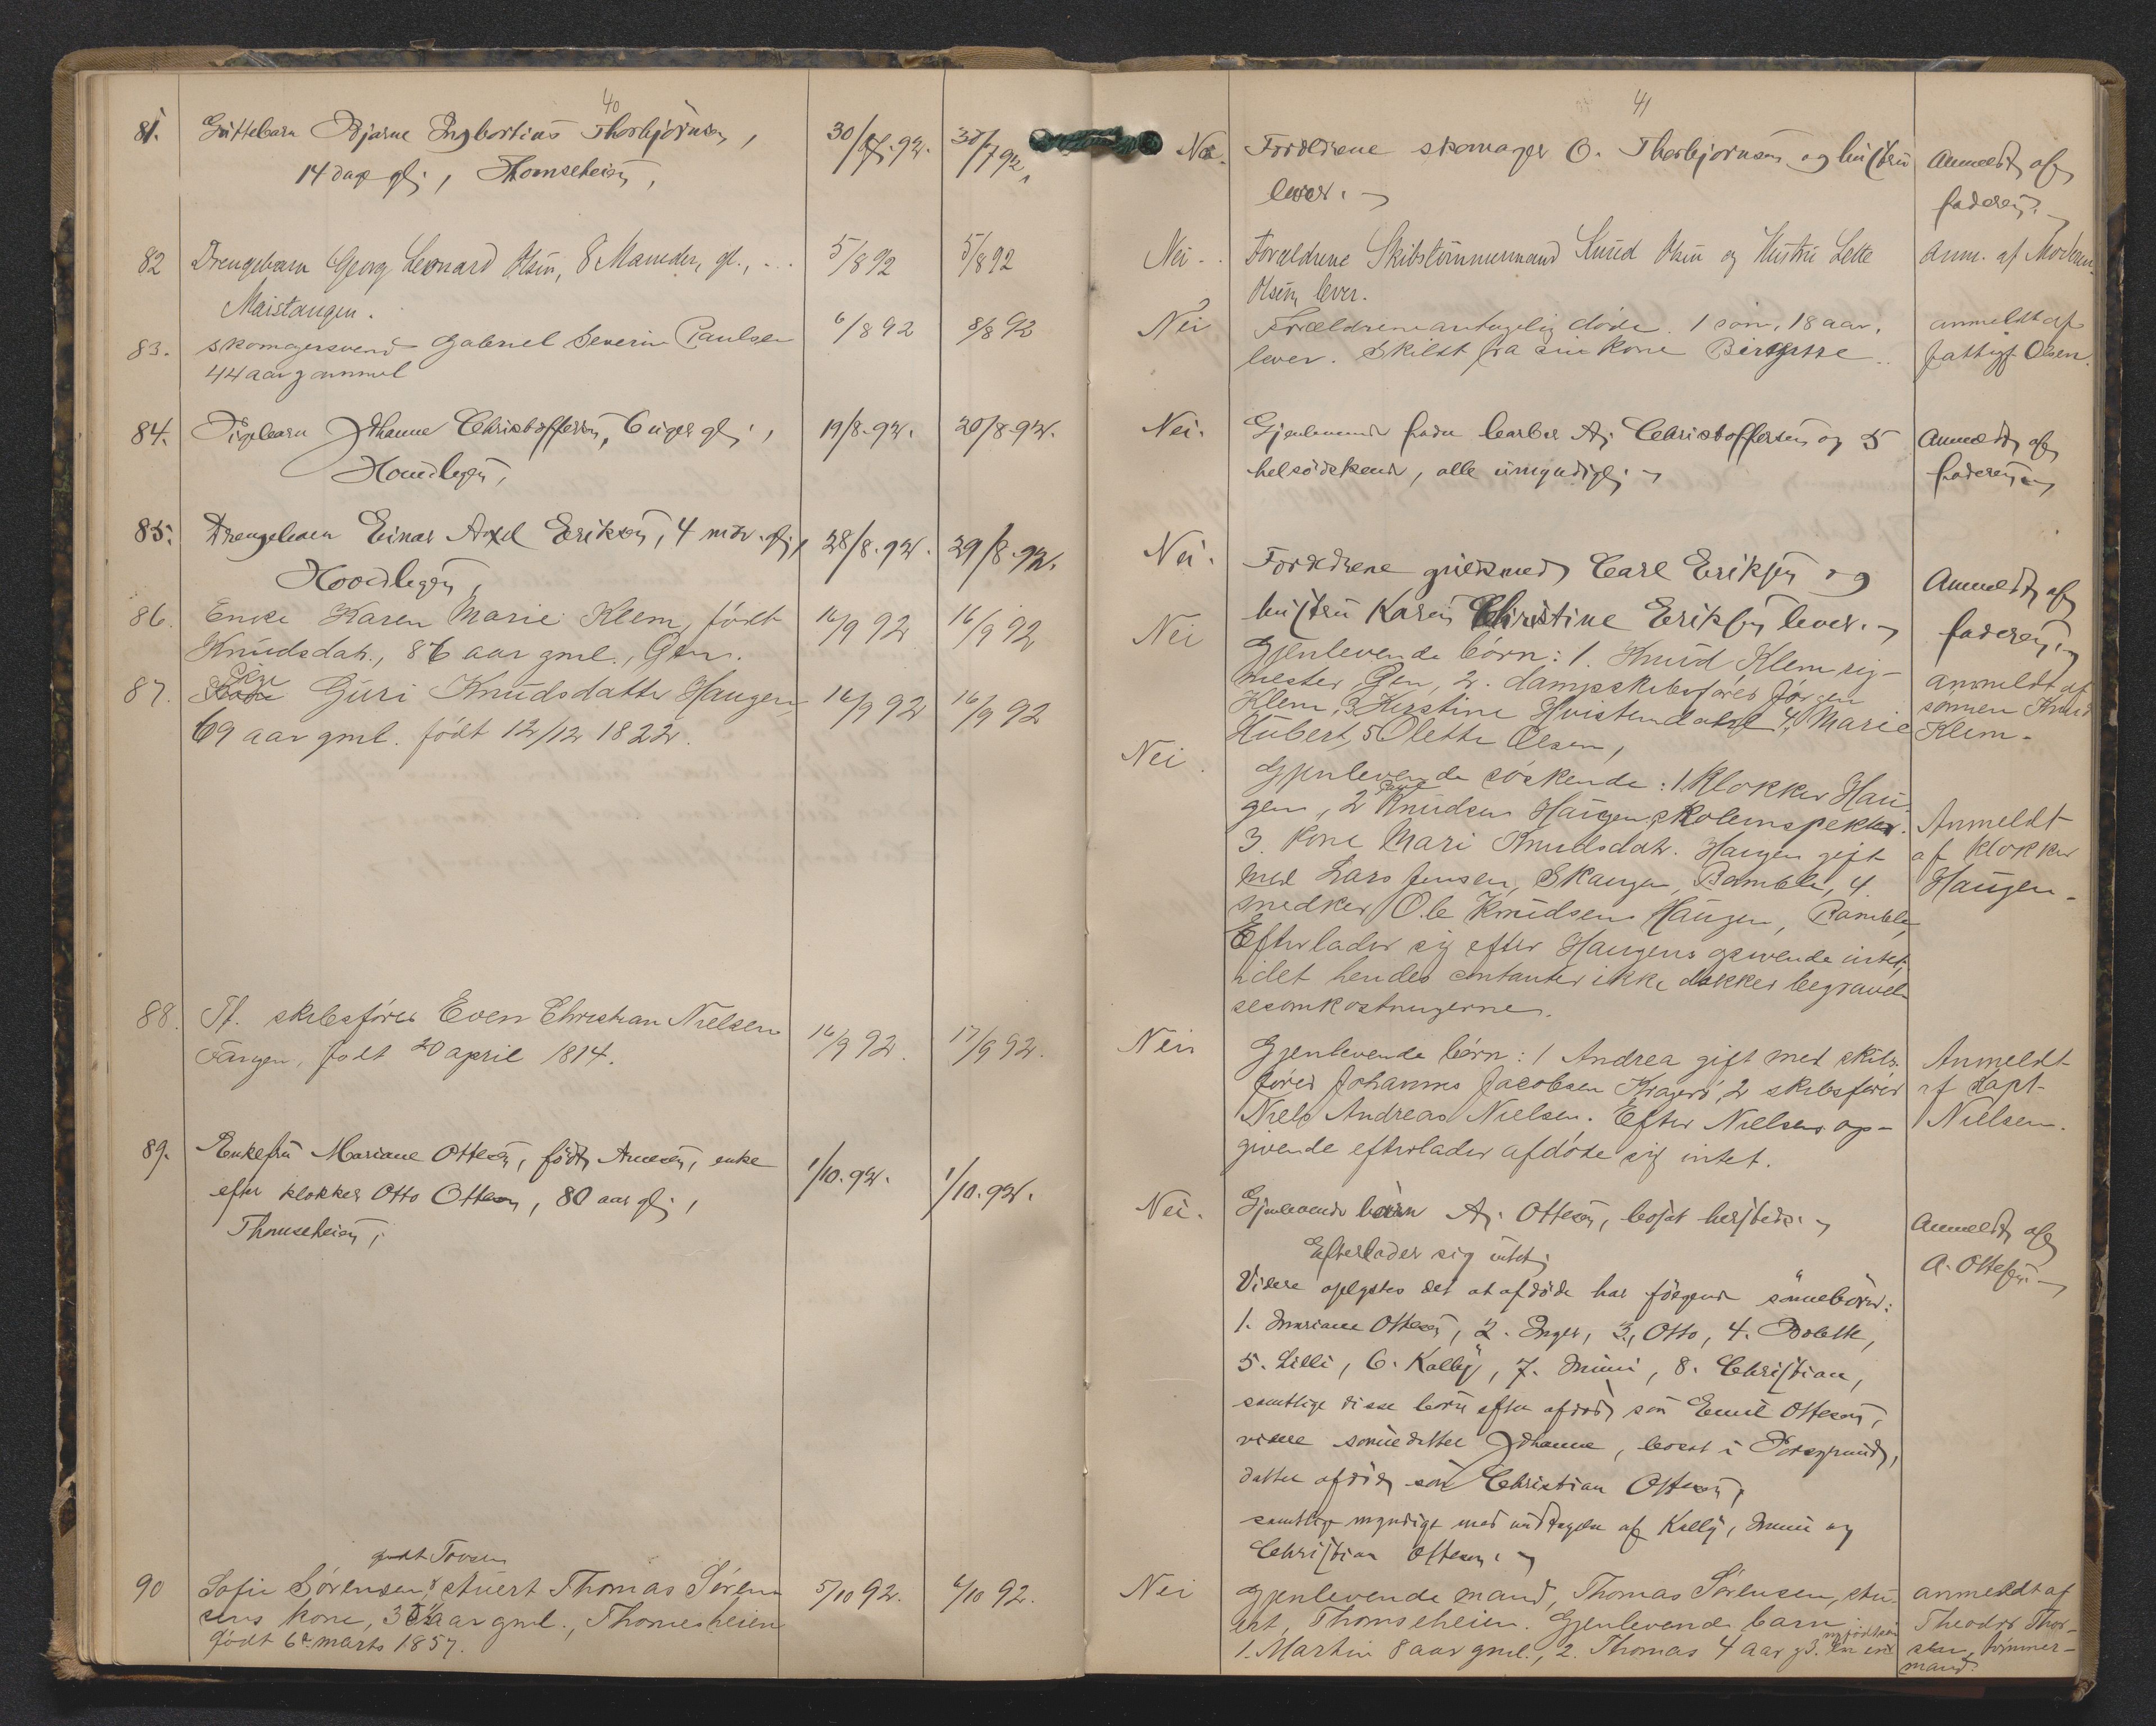 40
81. Guttebarn Bjarne Ingbertius Thorbjørnsen,
14 dage gl., Thomseheien,
30/7.92. 30/7 92,
82 Drengebarn Georg Leonard Olsen, 8 Maaneder, gl.,
Maistangen.
5/8 92 5/8 92
83. skomagersvend Gabriel Severin Paulsen
44 aar gammel
6/8 92 8/8 92
84. Pigebarn Johanne Christoffersen, 6 uger gl.,
19/8.92. 20/8.92.
85. Drengebarn Einar Axel Eriksen, 4 mdr. gl.,
28/8.92. 29/8.92.
86. Enke Karen Marie Klem, født
Knudsdatr., 86 aar gml., Gern.
16/9 92 16/9 92
87. Pige Guri Knudsdatter Haugen,
69 aar gml. født 12/12 1822.
16/9 92 16/9 92
88. Ff. skibsfører Even Christian Nielsen
Tangen, født 20 april 1814.
16/9 92. 17/9 92.
89. Enkefru Mariane Ottesen, født Arnesen, enke
efter klokker Otto Ottesen, 80 aar gl.,
Thomseheien,
1/10.92. 1/10.92.
født Tovsen
90 Sofie Sørensen, stuert Thomas Søren-
sens kone, 35 aar gml., Thomesheien
født 6te marts 1857.
5/10 92. 6/10 92.
41
Nei. Forældrene skomager O. Thorbjørnsen og hustru
lever.
Anmeldt af
faderen.
Nei. Forældrene Skibstømmermand Knud Olsen og Hustru Lette
Olsen lever.
Anm. af Morten
Nei Forældrene antagelig døde. 1 søn, 18 aar,
lever. Skildt fra sin kone Birgitte
anmeldt af
fattigf. Olsen.
Nei. Gjenlevende fader barber A. Christoffersen og 5
helsødskend, alle umyndige.
Anmeldt af
faderen
Nei. Forældrene Carl Eriksen og
hustru Karen Christine Eriksen lever.
Anmeldt af
faderen
Nei Gjenlevende børn: 1. Knud Klem rig-
mester, Gern, 2. dampskibsfører Jørgen
Klem, 3 Kirstine Hvistendahl 4, Marie
Hubert, 5 Olette Olsen,
anmeldt af
sønnen Knud
Klem.
Nei. Gjenlevende søskende: 1. Klokker Hau-
gen, 2 Knudsen Haugen, skoleinspektør.
3. kone Mari Knudsdatr. Haugen gift
med Lars Jensen, Skaugen, Bamble, 4.
snedker Ole Knudsen Haugen, Bamble,
Efterlader sig efter Haugens opgivende intet,
idet hendes contanter ikke dækker begravel-
sesomkostningerne.
Anmeldt
af klokker
Haugen.
Nei Gjenlevende børn: 1 Andrea gift med skibs-
fører Johannes Jacobsen Kragerø, 2 skibsfører
Niels Andreas Nielsen. Efter Nielsens op-
givende efterlader afdøde sig intet.
Anmeldt
af Kapt.
Nielsen.
Nei. Gjenlevende børn A. Ottesen, bosat hersteds.
Efterlader sig intet.
Videre oplystes det at afdøde har følgende sønnebørn:
1. Mariane Ottesen, 2. Inger, 3, Otto, 4. Bolette,
5. Lilli, 6. Kally, 7. Mimi, 8. Christian,
samtlige disse børn efter afdød søn Emil Ottesen,
videre sønnedatter Johanne, bosat i Porsgrund,
datter afdød søn Christian Ottesen,
samtlige myndige med undtagelse af Kally, Mimi og
Christian Ottesen.
Anmeldt af
A. Ottesen
Nei Gjenlevende mand, Thomas Sørensen, stu-
ert, Thomseheien. Gjenlevende barn
1. Martin 8 aar gml., 2. Thomas 4 aar g 3. en
anmeldt af
Theodor Thor-
sen, tømmer-
mand.